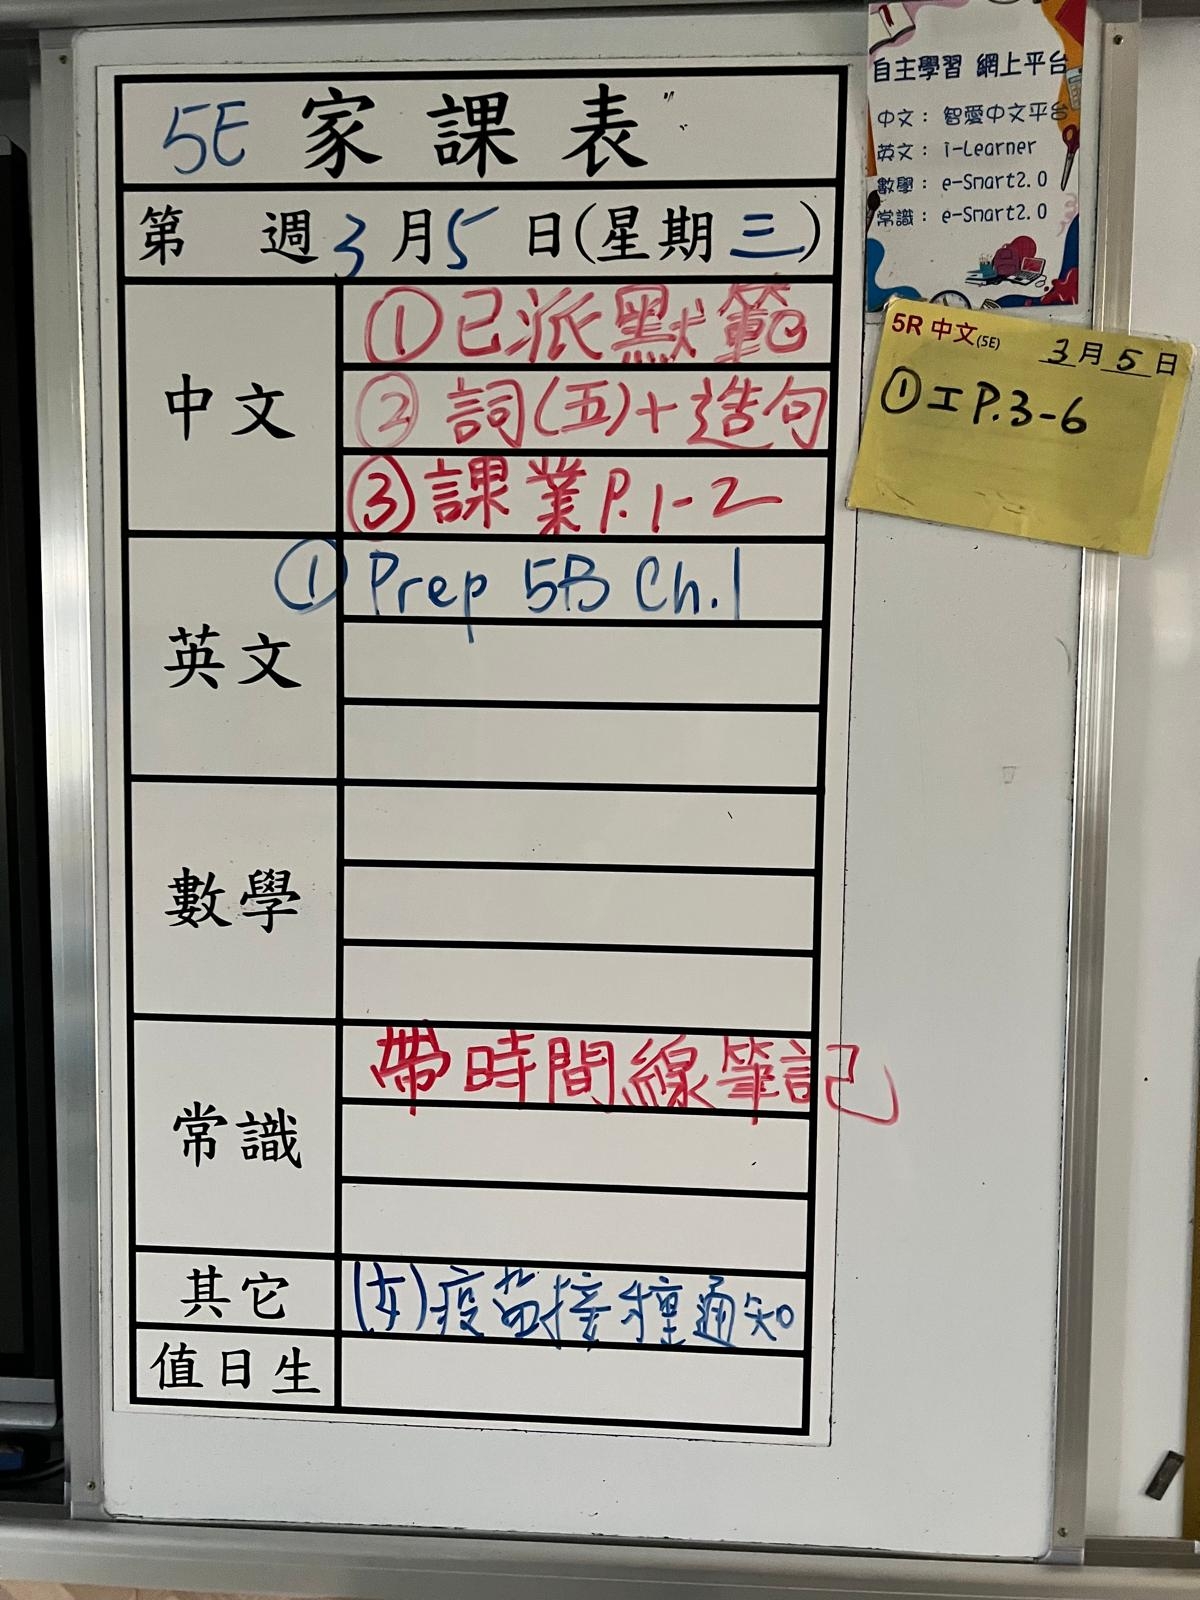 5E 家課表
第 週 3月5日(星期三)
中文
①已派默範
②詞(五)+造句
③課業P.1-2
英文
①Prep 5B Ch.1
數學
常識
帶時間線筆記
其它
疫苗接種通知
值日生
自主學習 網上平台
中文： 智愛中文平台
英文： i-Learner
數學： e-Smart2.0
常識： e-Smart2.0
5R 中文(5E) 3月5日
①工P.3-6